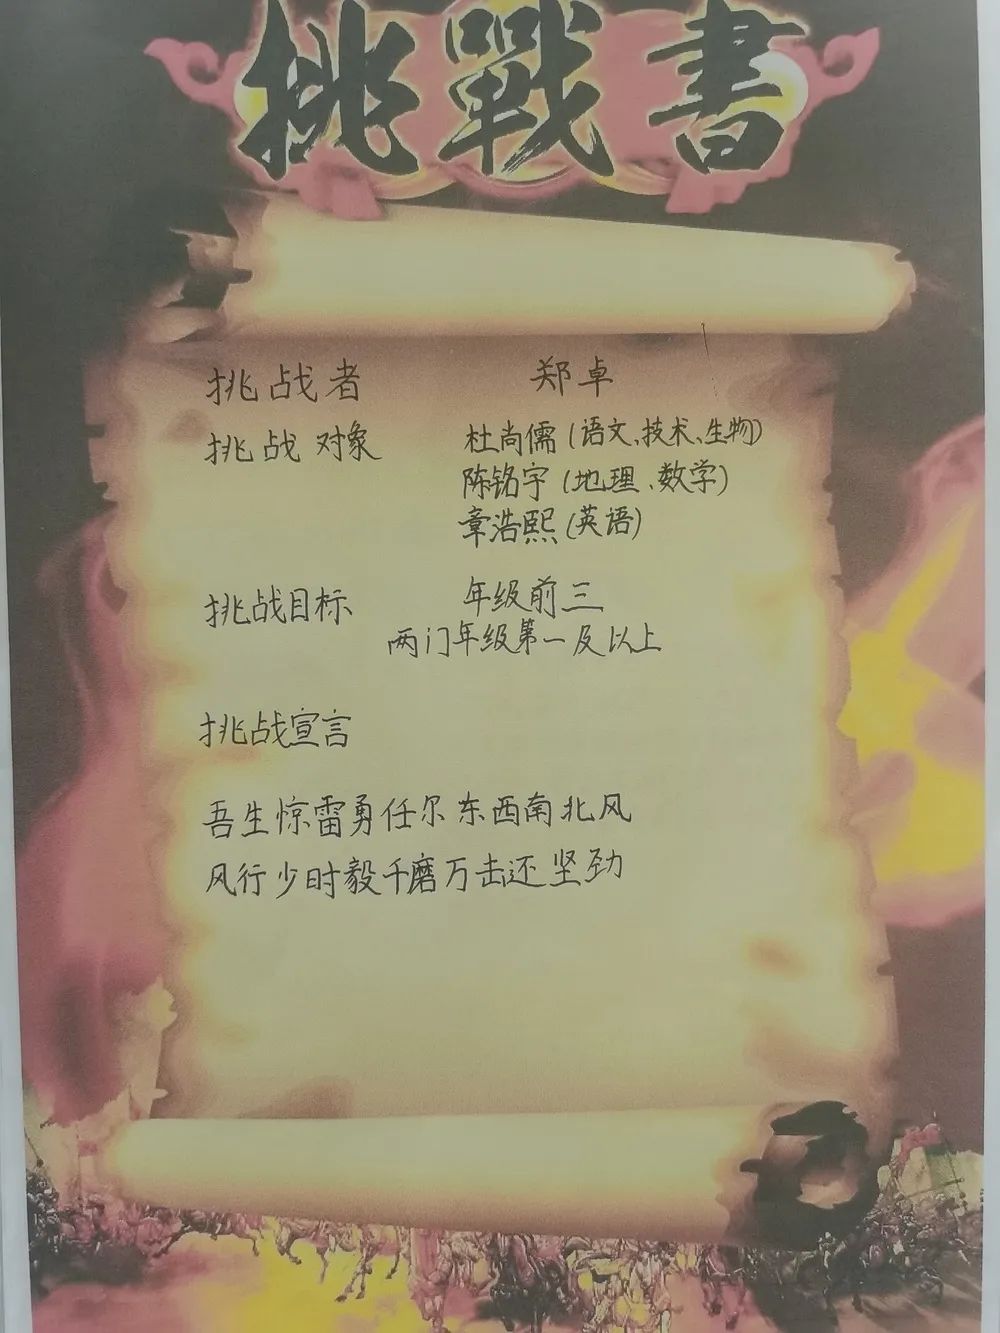 挑戰書
挑战者 郑卓
挑战对象 杜尚儒(语文、技术、生物)
陈铭宇(地理、数学)
章浩熙(英语)
挑战目标 年级前三
两门年级第一及以上
挑战宣言
吾生惊雷勇任尔东西南北风
风行少时毅千磨万击还坚劲